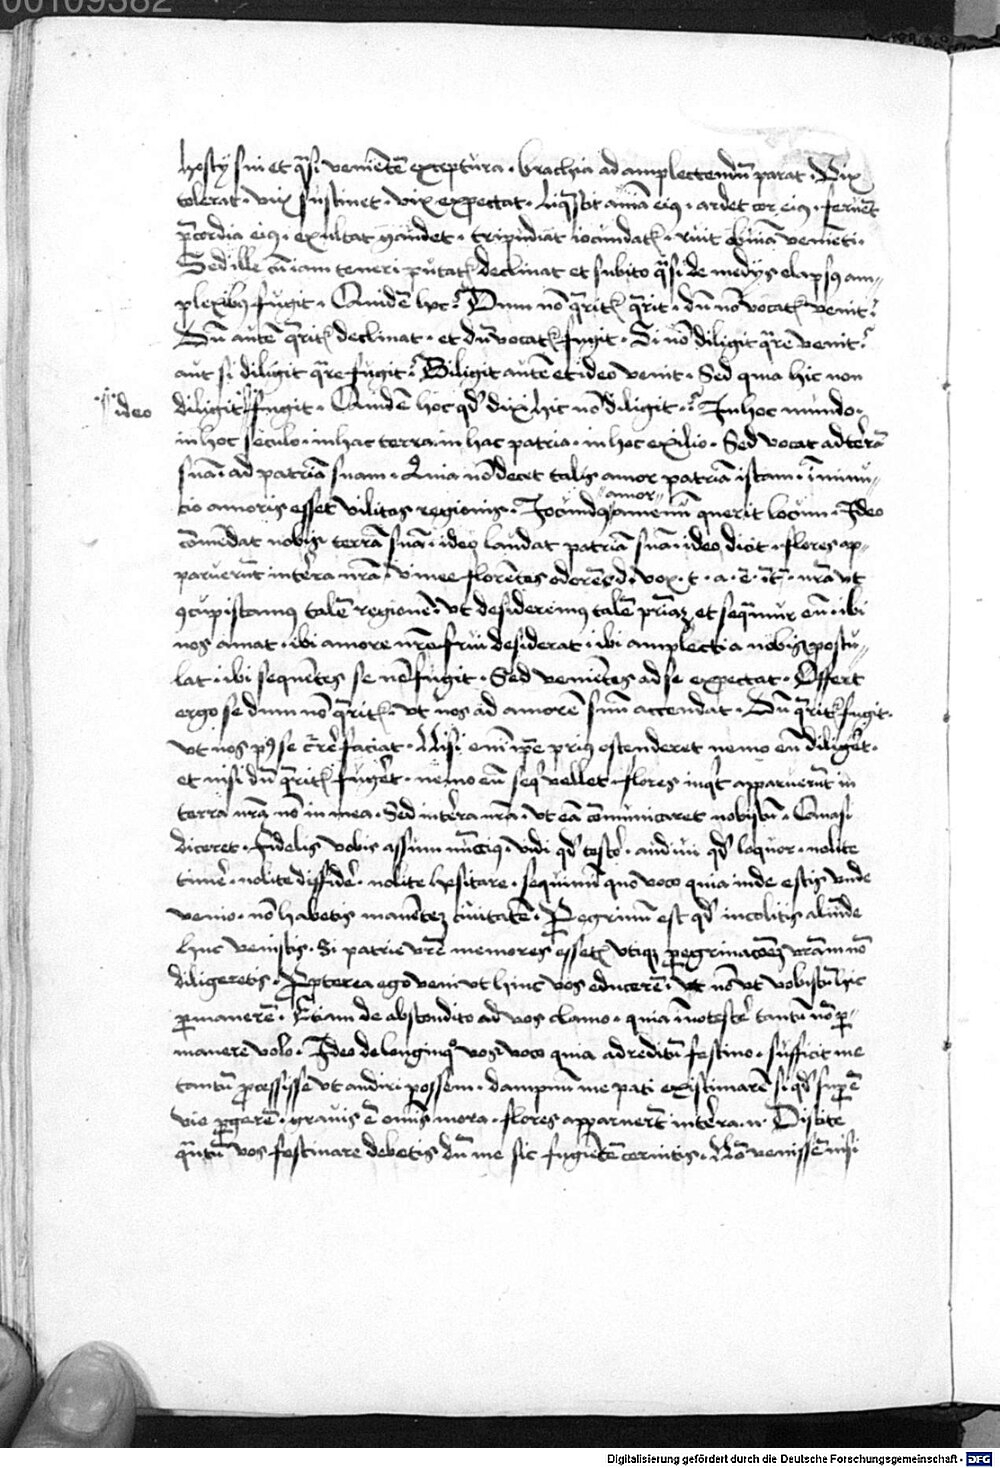 00109382
hostij sui et q̃si venientẽ exceptura · brachia ad amplectendũ parat · Vix
tolerat · vix sustinet · vix expectat · liq̃scit aĩa eiꝰ · ardet cor eiꝰ · feruẽt
p̃cordia eiꝰ · exultat gaudet · tripudiat iocundat᷑ · ruit obuiã venienti ·
Sed ille cũ iam teneri putat᷑ declinat et subito q̃si de medijs elapsꝰ am=
plexibꝫ fugit · Quidẽ hoc ? Dum nõ q̃rit᷑ q̃rit · dũ nõ vocat᷑ venit ?
Dũ autẽ q̃rit᷑ declinat · et dũ vocat᷑ fugit · Si nõ diligit q̃re venit ?
aut si diligit q̃re fugit ? Diligit autẽ et ideo venit · Sed quia hic non
ideo
diligit fugit · Quidẽ hoc qd̃ dixi hic nõ diligit ? In hoc mundo ·
in hoc seculo · in hac terra in hac patria · in hoc exilio · Sed vocat ad terrã
suã · ad patriã suam · Quia nõ decet talis amor patriã istam · im̃inu=
cio amoris esset vilitas regionis · Iocundꝰ amenũ querit locum · Ideo
amor
cõmẽdat nobis terrã suã · ideo laudat patriã suã · ideo dicit · flores ap=
paruerũt in terra nrã · vinee florẽtes odorẽ d · vox · t · a · ẽ · ĩ t · nrã vt
ꝯcupiscamꝰ talẽ regionẽ · vt desideremꝰ talẽ pr̃iaꝫ et seq̃mur eũ · ibi
nos amat · ibi amore nrõ frui desiderat · ibi amplecti a nobis postu=
lat · ibi sequẽtes se nõ fugit · Sed venientes ad se expectat · Offert
ergo se dum nõ q̃rit᷑ · vt nos ad amorẽ suũ accendat · Dũ q̃rit᷑ fugit ·
vt nos pꝰ se c̃rẽ faciat · Nisi em̃ ip̃e priꝰ ostenderet nemo eũ diligẽt ·
et nisi dũ q̃rit᷑ fugẽt · nemo eũ seq̃ vellet · flores inq̃t apparuerũt in
terra nrã nõ in mea · Sed in terra nrã · vt eã cõmunicaret nobiscũ · Quasi
diceret · Fidelis vobis assum nũciꝰ · vidi qd̃ testor · audiui qd̃ loquor · nolite
timẽ · nolite diffidẽ · nolite hesitare · sequimĩ quo voco quia inde estis vnde
venio · nõ habetis manẽteꝫ ciuitatẽ · Pegrinũ est qd̃ incolitis aliunde
huc venistis · Si patrie vr̃e memores essetis vtiqꝫ peregrinacõeꝫ vrãm nõ
diligeretis · Propterea ego veni vt hinc vos educerẽ · nõ vt vobiscũ hic
permanerẽ · Etiam de abscondito ad vos clamo · quia tantũ nõ per=
manere volo · Ideo de longinq̊ vos voco quia ad reditũ festino · sufficit me
tantũ processisse vt audiri possem · dampnũ me pati existimarẽ si qd̃ supẽ
vie pgerẽ · grauis ẽ om̃is mora · flores apparuerũt in terra · n · Discite
q̃ntũ vos festinare debetis dũ me sic fugiẽtẽ cernitis · Nõ venissẽ nisi
Digitalisierung gefördert durch die Deutsche Forschungsgemeinschaft - DFG